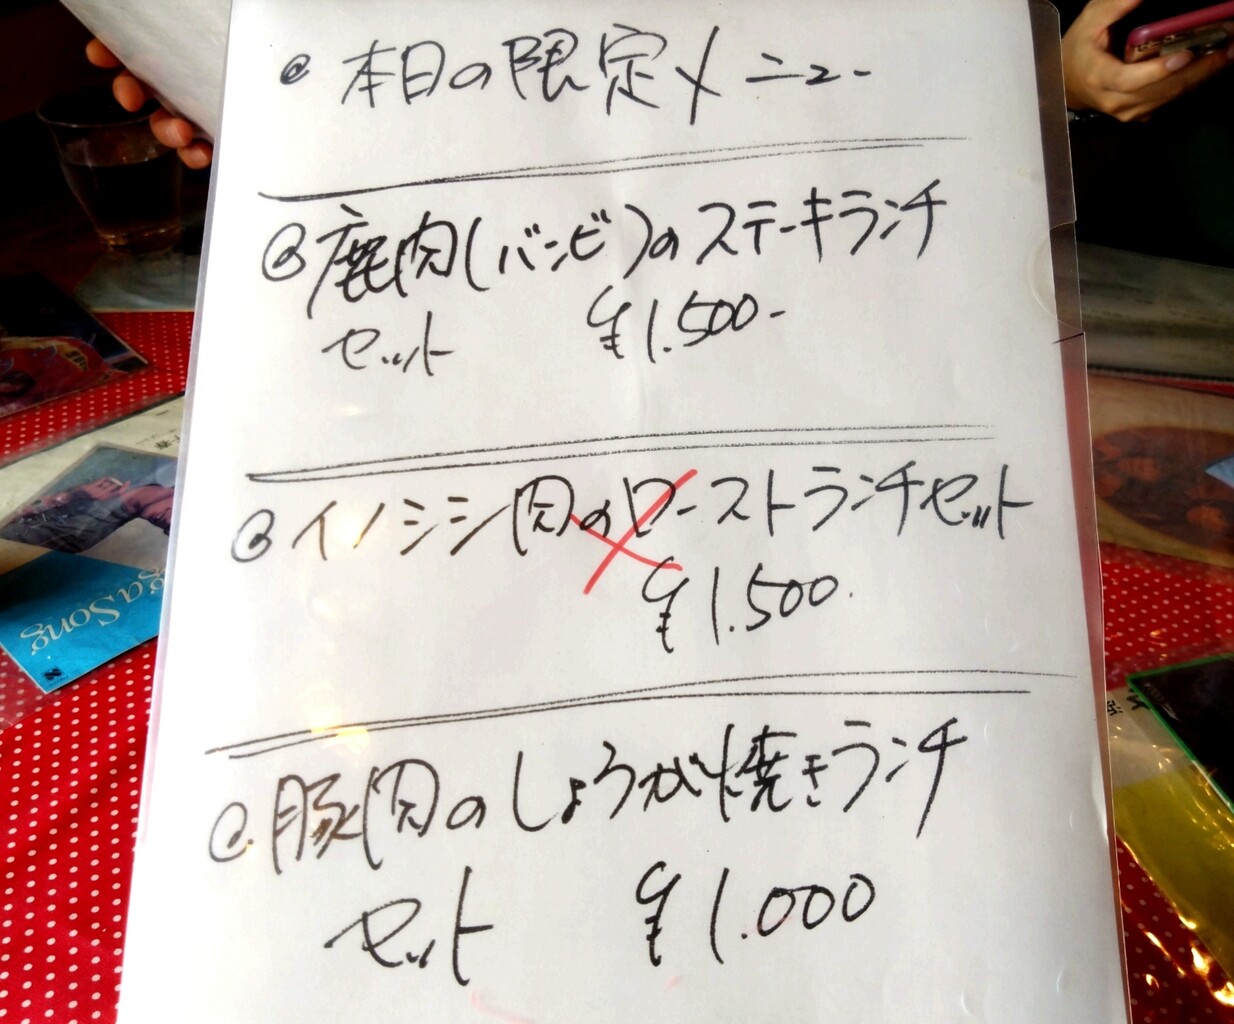 ◎ 本日の限定メニュー
◎ 鹿肉(バンビ)のステーキランチ
セット ¥1.500-
◎ イノシシ肉のローストランチセット
¥1.500.
◎ 豚肉のしょうが焼きランチ
セット ¥1.000
gaSong